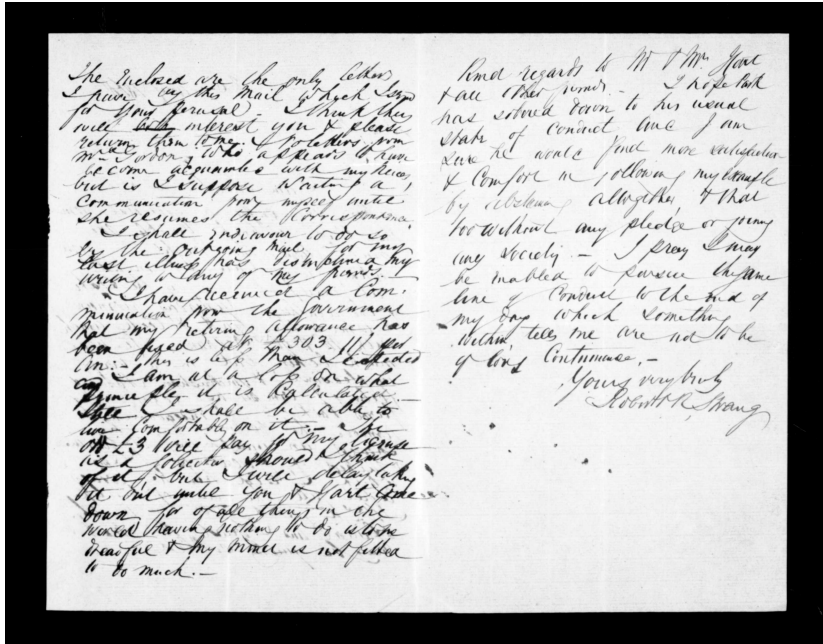 The Enclosed are the only letters
I have by this Mail which I send
for your perusal. I think they
will interest you & please
return them to me. No letters from
Mrs Gordon, who appears to have
become acquainted with my Nieces
but is I suppose waiting a
communication from myself until
she resumes the correspondence.
I shall endeavour to do so
by the outgoing Mail for my
last illness has my
writing to any of my friends.—
I have received a Com-
munication from the Government
that my retiring allowance has
been fixed at £303.11/ per
An:— this is less than I expected
and I am at a loss on what
principles it is Calculated —
Still I shall be able to
live comfortable on it.— The
odd £3 will pay for my license
as a Solicitor should I think
of it, but I will delay taking
it out until you & Hart Come
down for of all things in the
world having nothing to do is to me
dreadful & my mind is not fitted
to do much.—
Kind regards to Mr & Mrs Hart
& all other friends.— I hope Park
has sobered down to his usual
state of conduct and I am
sure he would find more satisfaction
& Comfort in following my example
by abstaining altogether, & that
too without any pledge or joining
any society.— I pray I may
be enabled to pursue the same
line of Conduct to the end of
my days which something
within tells me are not to be
of long Continuance.—
Yours very truly
Robert R. Strang